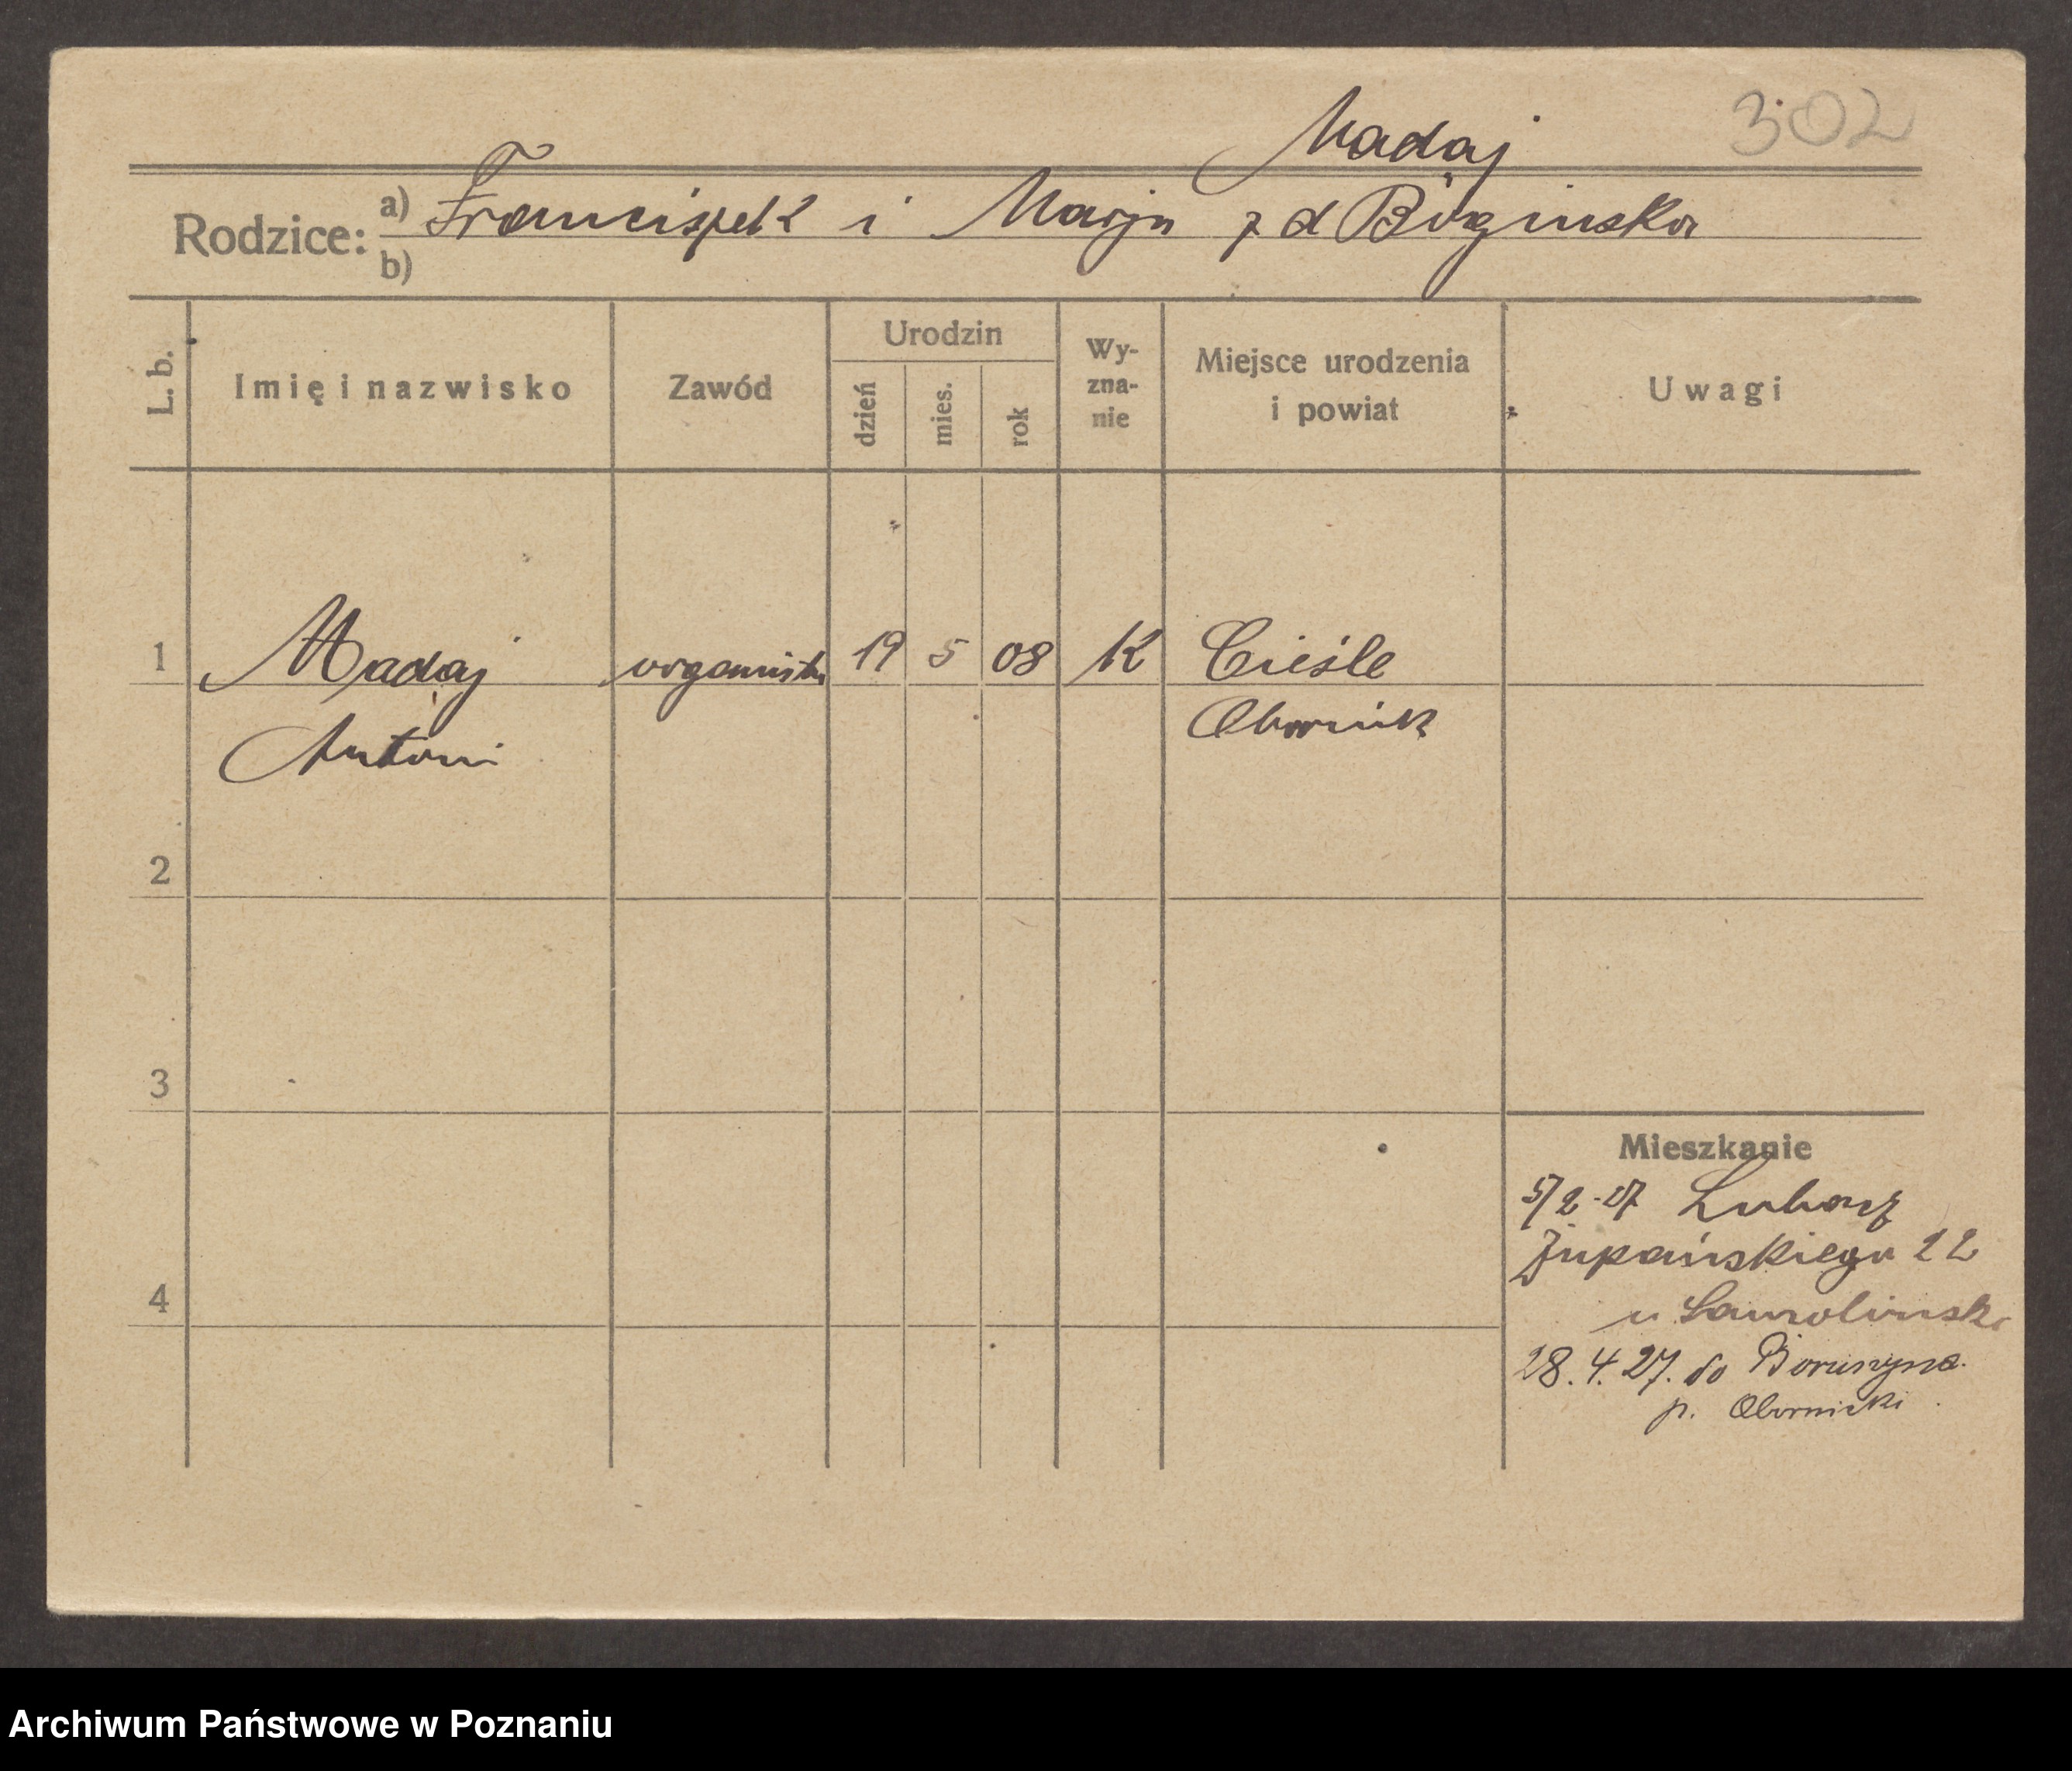 302
Madaj
Rodzice: a) Franciszek i Marja z d Bogińska
b)
L. b. Imię i nazwisko Zawód Urodzin dzień mies. rok Wy- zna- nie Miejsce urodzenia i powiat Uwagi
1 Madaj organista 19 5 08 K Cieśle
Antoni Obornik
2
3
4
Mieszkanie
5/2 27 Lubasz
Żupańskiego 22
u
28.4.27. do Boruszyna
p. Obornicki
Archiwum Państwowe w Poznaniu